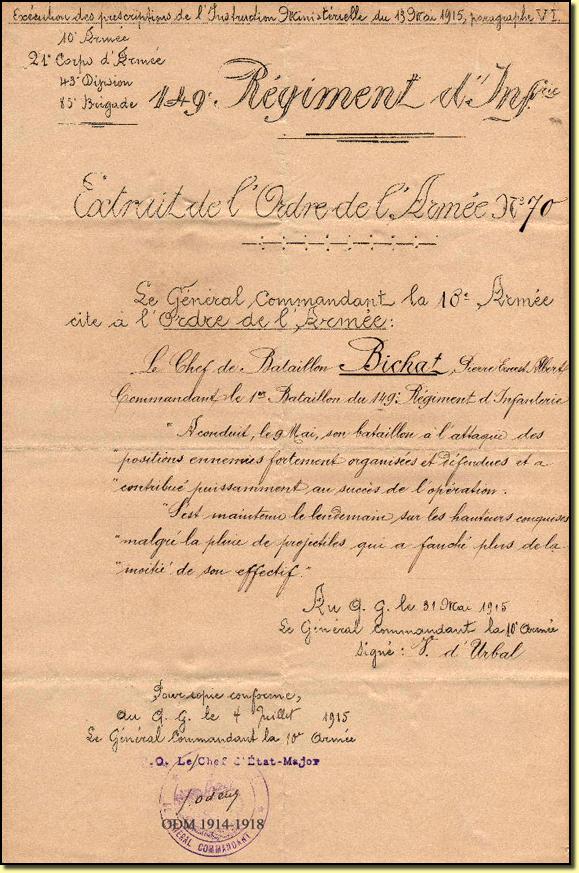 Exécution des prescriptions de l'Instruction Ministérielle du 13 Mai 1915, paragraphe VI.
10e Armée
21e Corps d'Armée
43e Division
85e Brigade
149e Régiment d'Infrie
Extrait de l'Ordre de l'Armée No 70
Le Général Commandant la 10e Armée
cite à l'Ordre de l'Armée :
Le Chef de Bataillon Bichat, Pierre Ernest Albert
Commandant le 1er Bataillon du 149e Régiment d'Infanterie
"A conduit, le 9 Mai, son bataillon à l'attaque des
"positions ennemies fortement organisées et défendues et a
"contribué puissamment au succès de l'opération.
"S'est maintenu le lendemain sur les hauteurs conquises
"malgré la pluie de projectiles qui a fauché plus de la
"moitié de son effectif."
Au Q. G. le 31 Mai 1915
Le Général Commandant la 10e Armée
Signé : V. d'Urbal
Pour copie conforme,
au Q. G. le 4 Juillet 1915
Le Général Commandant la 10e Armée
P.O. Le Chef d'État-Major
ODM 1914-1918
GÉNÉRAL COMMANDANT